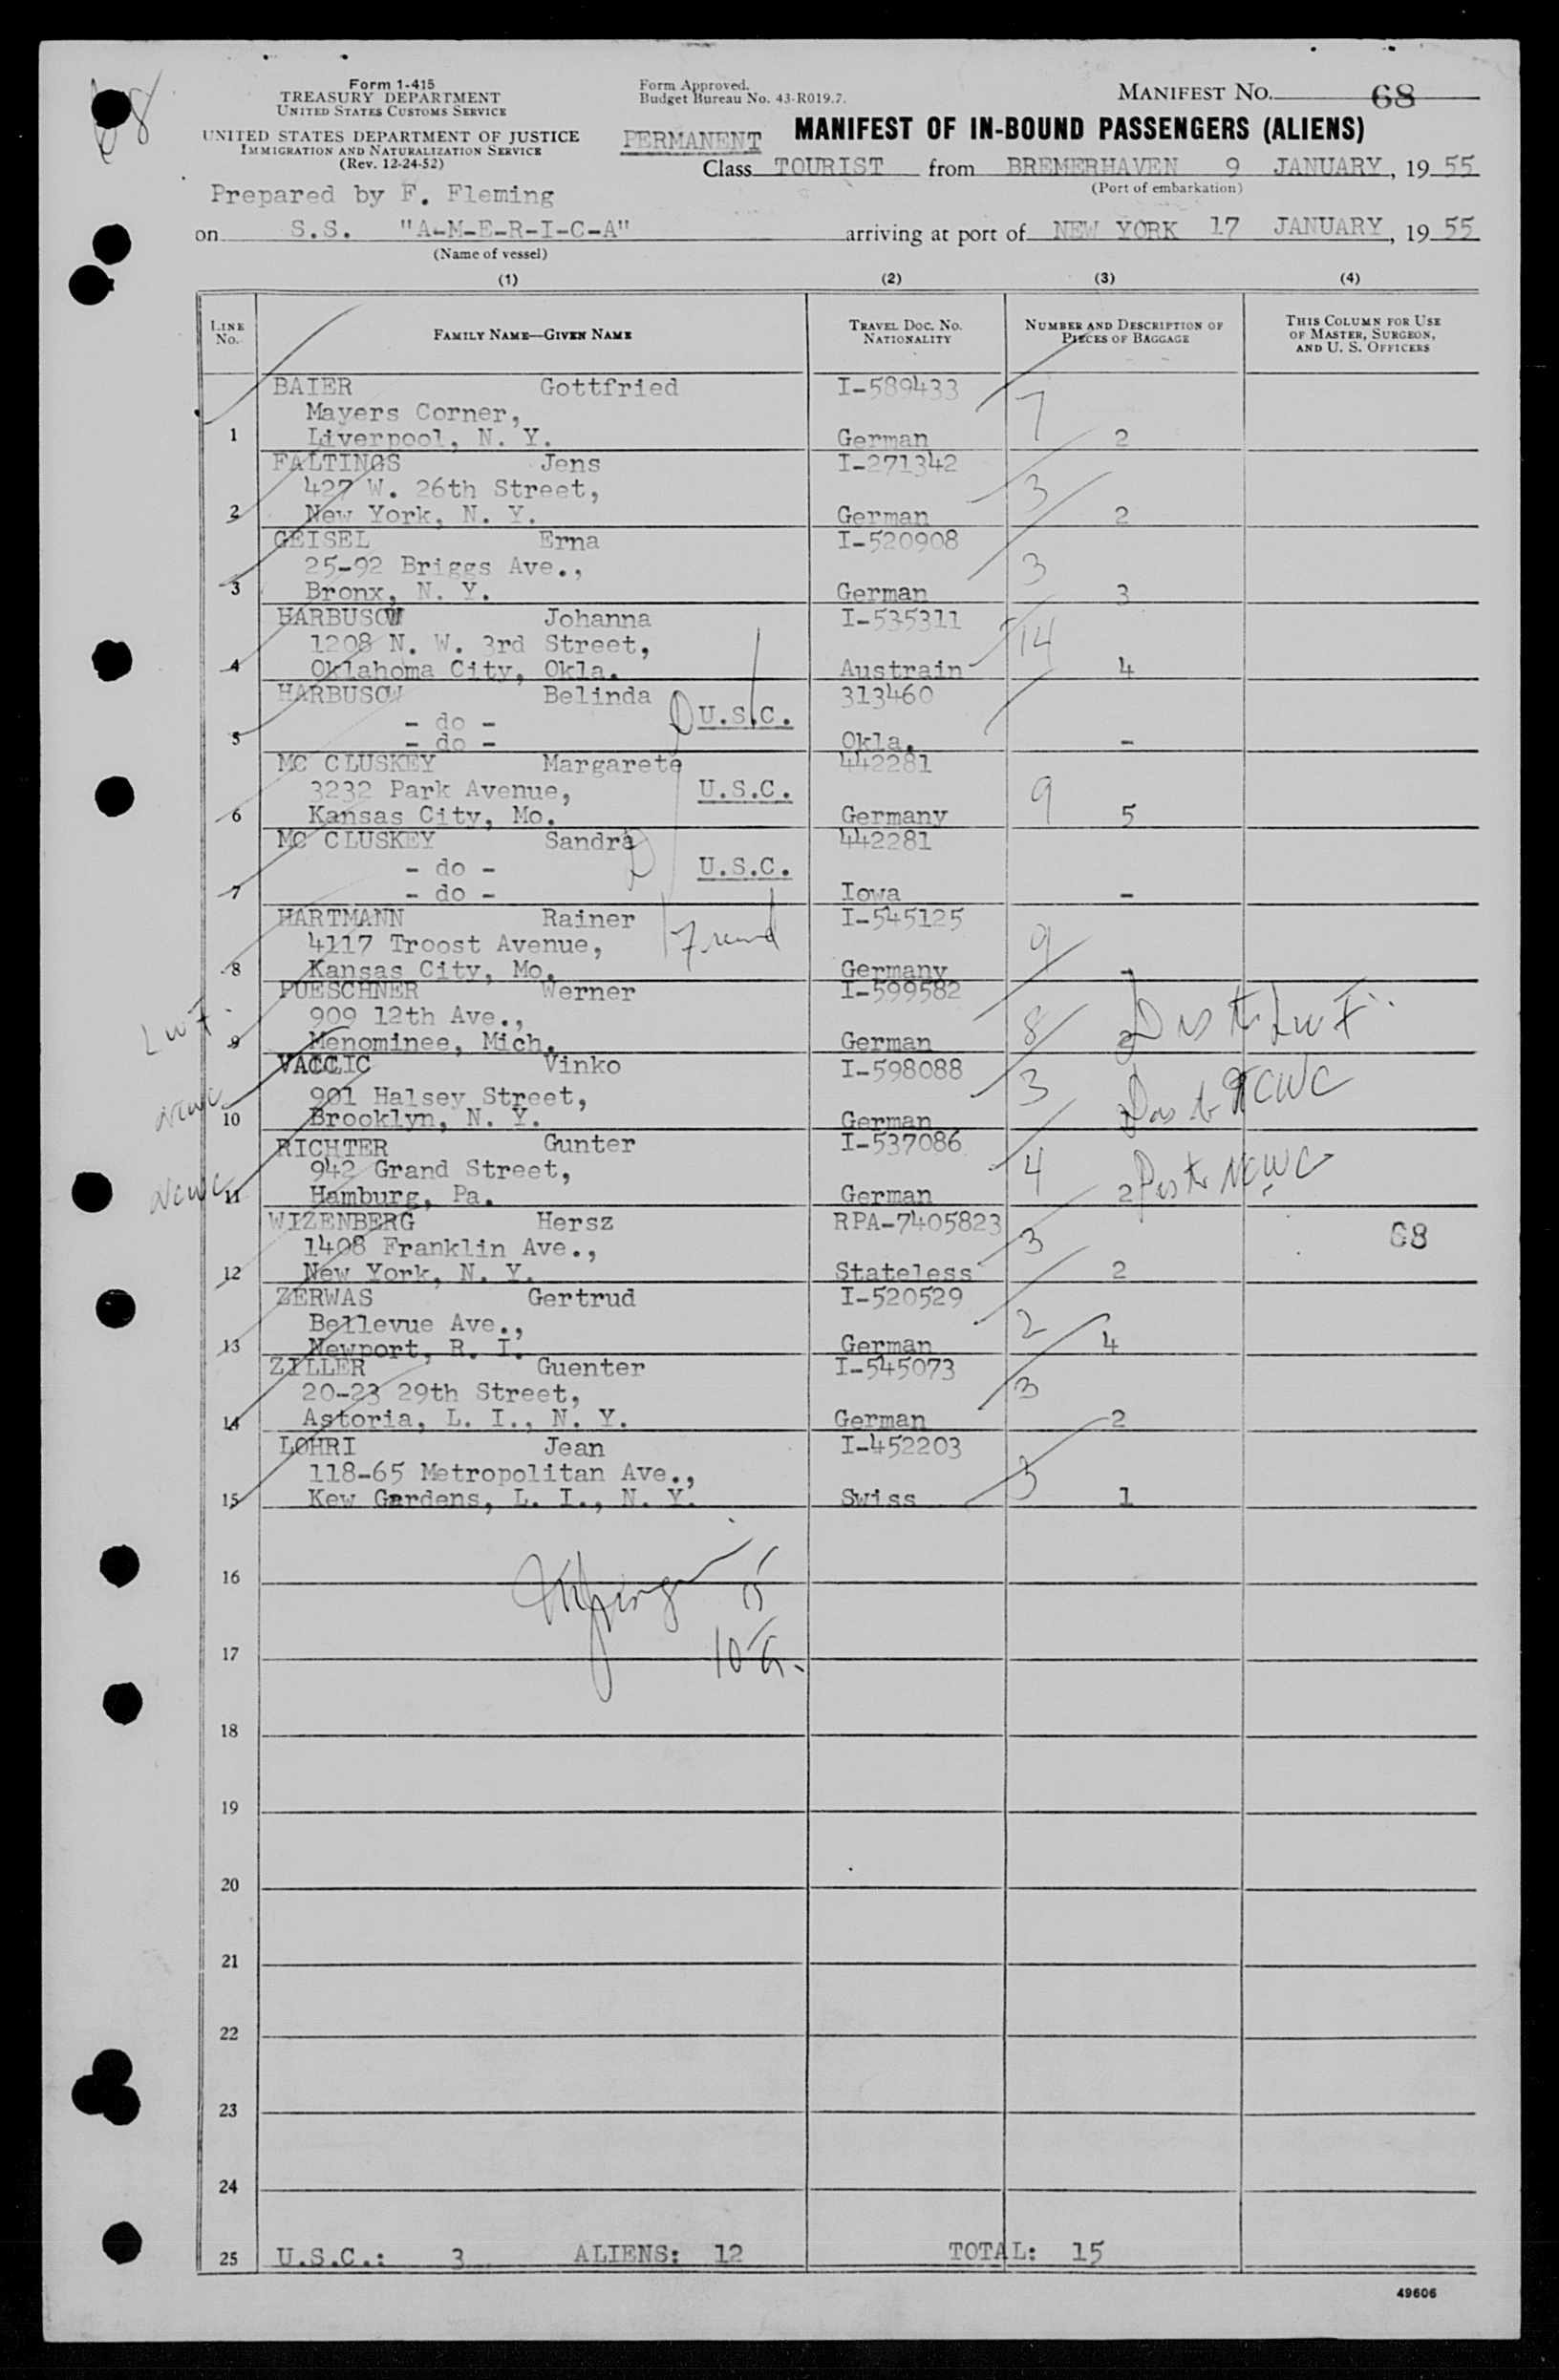 68
Form 1-415
TREASURY DEPARTMENT
UNITED STATES CUSTOMS SERVICE
UNITED STATES DEPARTMENT OF JUSTICE
IMMIGRATION AND NATURALIZATION SERVICE
(Rev. 12-24-52)
Form Approved.
Budget Bureau No. 43-R019.7.
MANIFEST NO. 68
PERMANENT MANIFEST OF IN-BOUND PASSENGERS (ALIENS)
Class TOURIST from BREMERHAVEN 9 JANUARY, 19 55
(Port of embarkation)
Prepared by F. Fleming
on S.S. "A-M-E-R-I-C-A" arriving at port of NEW YORK 17 JANUARY, 19 55
(Name of vessel)
(1) (2) (3) (4)
LINE No. FAMILY NAME—GIVEN NAME TRAVEL DOC. NO. NATIONALITY NUMBER AND DESCRIPTION OF PIECES OF BAGGAGE THIS COLUMN FOR USE OF MASTER, SURGEON, AND U. S. OFFICERS
BAIER Gottfried I-589433
Mayers Corner, 7
1 Liverpool, N. Y. German 2
FALTINGS Jens I-271342
427 W. 26th Street, 3
2 New York, N. Y. German 2
GEISEL Erna I-520908
25-92 Briggs Ave., 3
3 Bronx, N. Y. German 3
HARBUSOW Johanna I-535311
1208 N. W. 3rd Street, 14
4 Oklahoma City, Okla. Austrain 4
HARBUSOW Belinda 313460
- do - U.S.C.
5 - do - Okla. -
MC CLUSKEY Margarete 442281
3232 Park Avenue, U.S.C. 9
6 Kansas City, Mo. Germany 5
MC CLUSKEY Sandra 442281
- do - U.S.C.
7 - do - Iowa -
HARTMANN Rainer I-545125
4117 Troost Avenue, 9
8 Kansas City, Mo. Germany -
PUESCHNER Werner I-599582
909 12th Ave., 8
LWF 9 Menominee, Mich. German 2 LWF
VACCIC Vinko I-598088
901 Halsey Street, 3 NCWC
NCWC 10 Brooklyn, N. Y. German
RICHTER Gunter I-537086
942 Grand Street, 4 NCWC
NCWC 11 Hamburg, Pa. German 2
WIZENBERG Hersz RPA-7405823
1408 Franklin Ave., 3 68
12 New York, N. Y. Stateless 2
ZERWAS Gertrud I-520529
Bellevue Ave., 2
13 Newport, R. I. German 4
ZILLER Guenter I-545073
20-23 29th Street, 3
14 Astoria, L. I., N. Y. German 2
LOHRI Jean I-452203
118-65 Metropolitan Ave., 3
15 Kew Gardens, L. I., N. Y. Swiss 1
16
17
18
19
20
21
22
23
24
25 U.S.C.: 3 ALIENS: 12 TOTAL: 15
49606